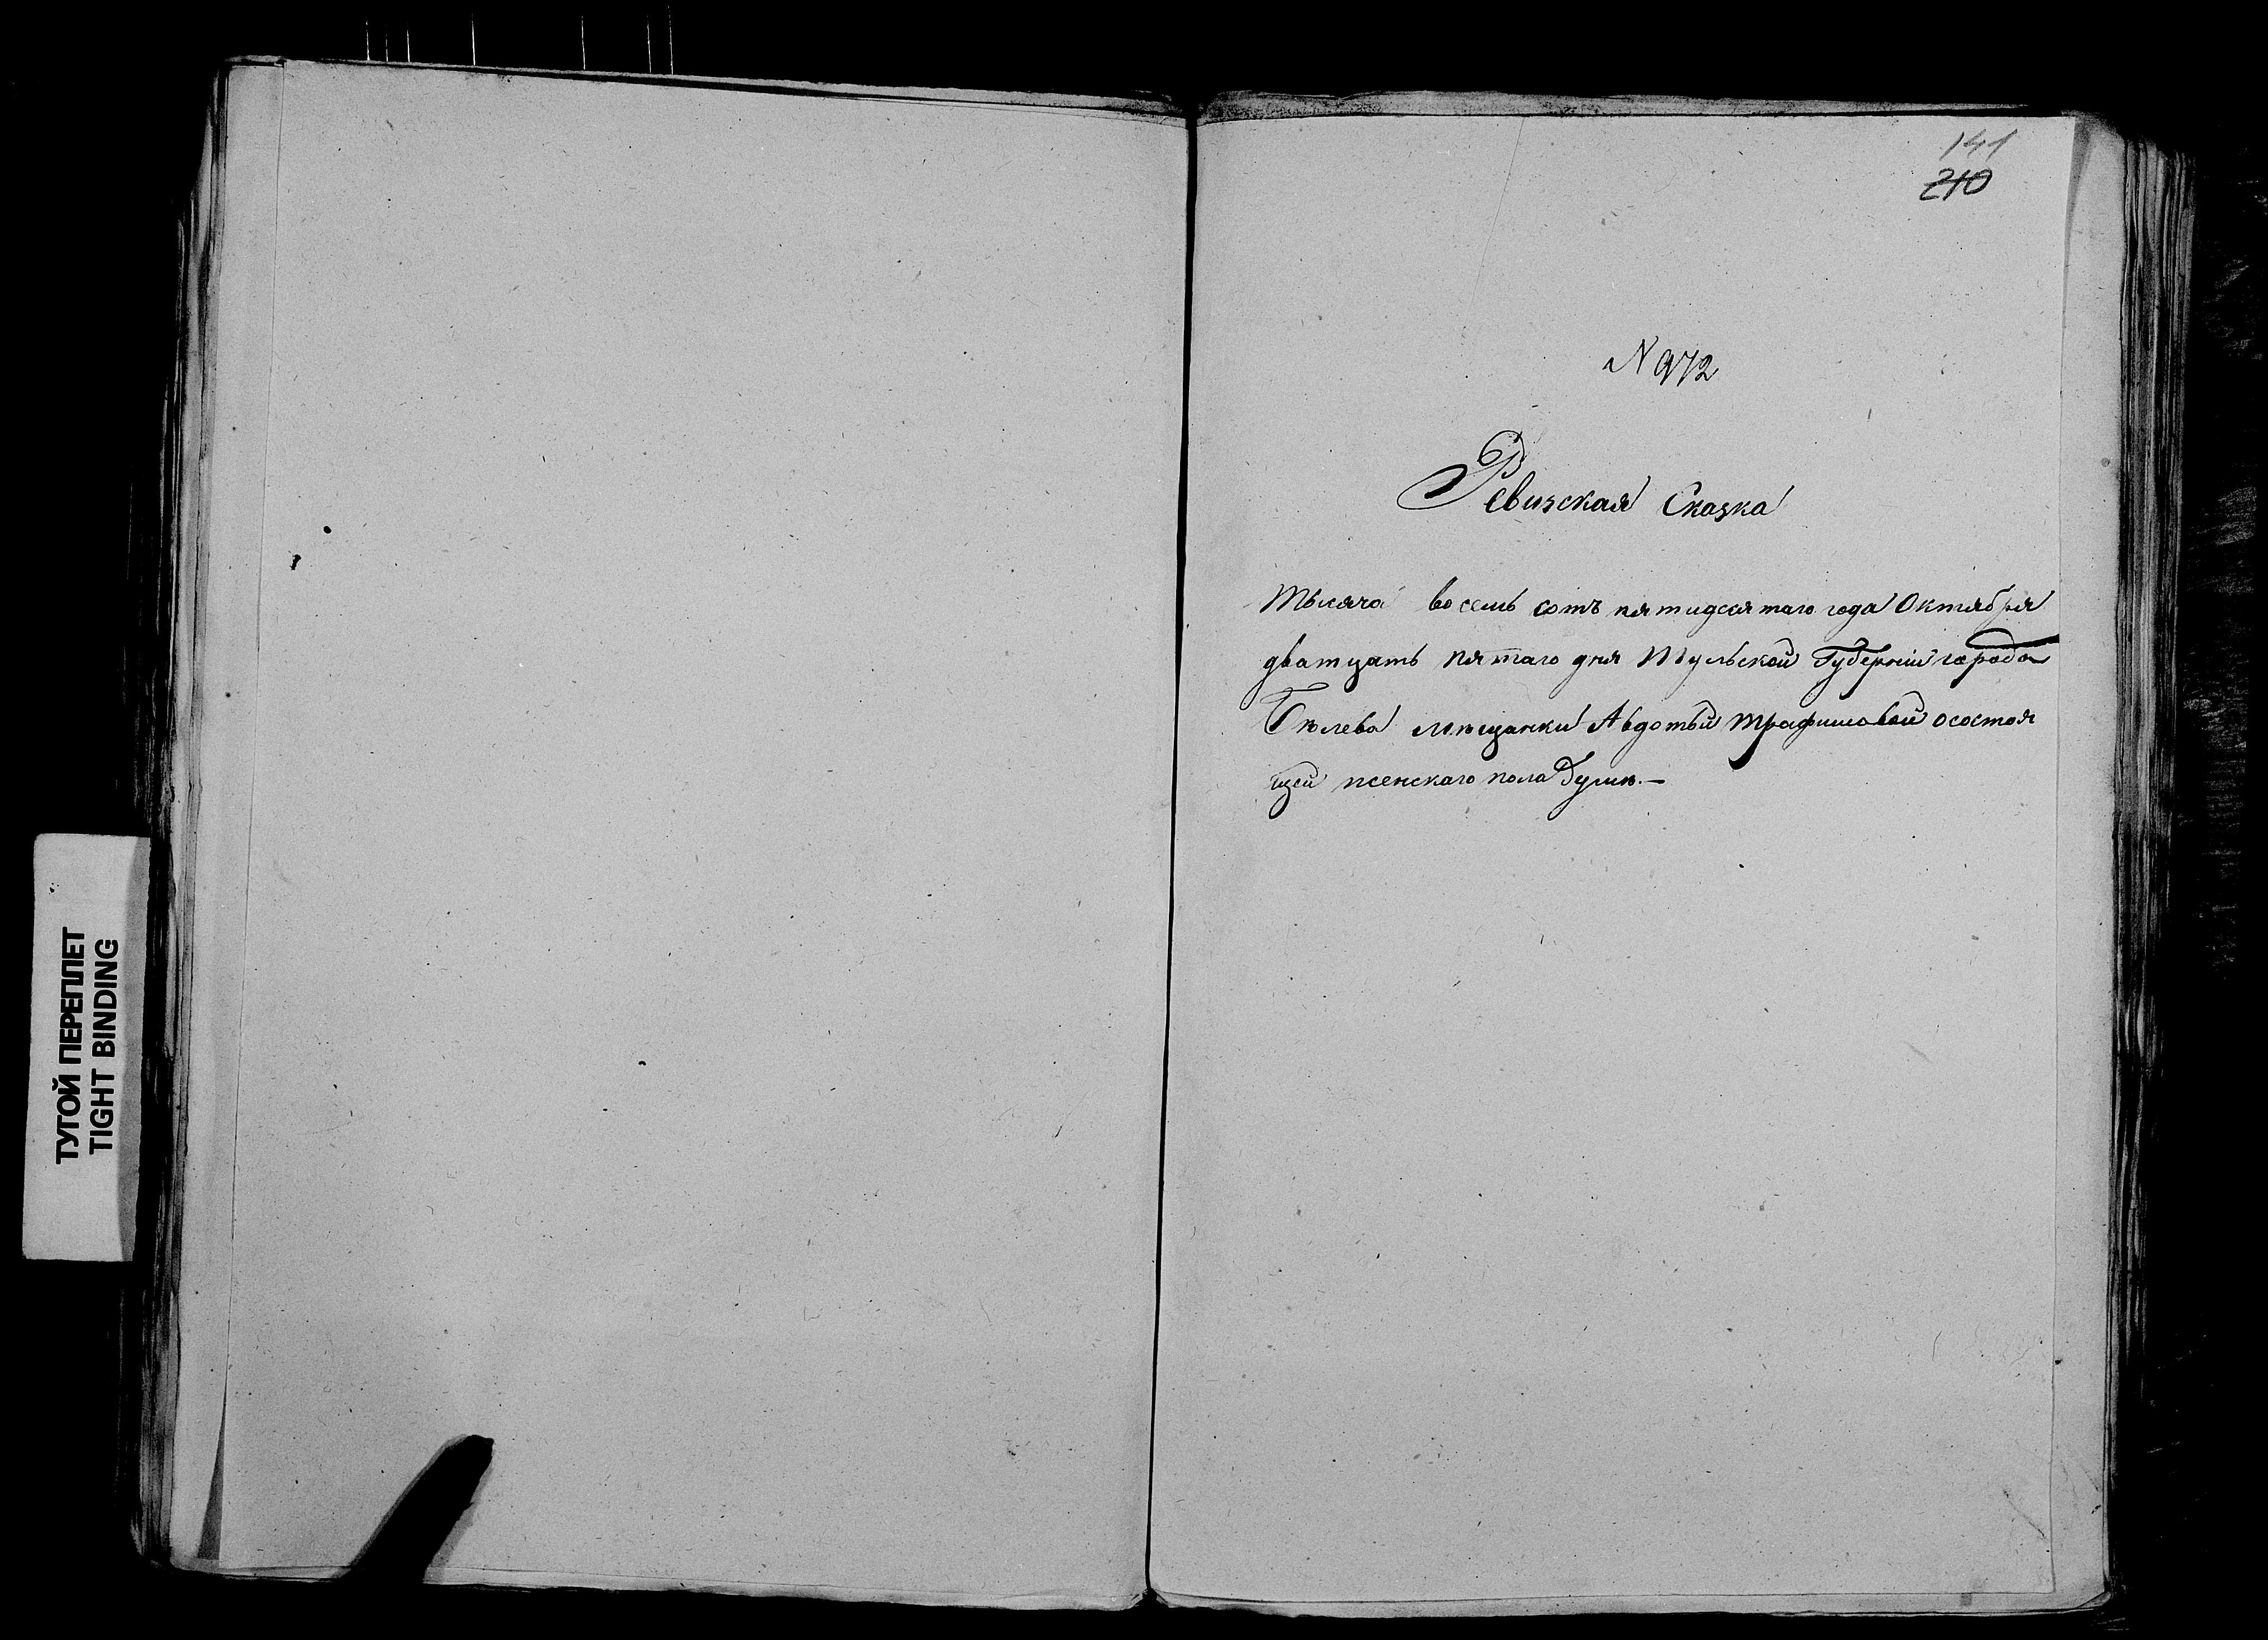 141
210
N 972
Ревизская Сказка
Тысяча восемь сотъ пятидесятаго года Октября
дватцать пятаго дня Тульской Губерніи города
Бѣлева мѣщанки Авдотьи Трафимовой о состоя
щей женскаго пола душѣ. —
ТУГОЙ ПЕРЕПЛЕТ
TIGHT BINDING